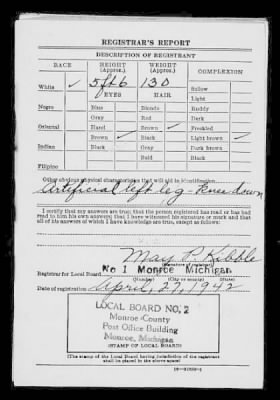 REGISTRAR'S REPORT
DESCRIPTION OF REGISTRANT
RACE HEIGHT (Approx.) WEIGHT (Approx.) COMPLEXION
White ✓ 5 ft 6 130 Sallow
EYES HAIR Light
Negro Blue Blonde Ruddy
Gray Red Dark
Oriental Hazel Brown ✓ Freckled
Brown ✓ Black Light brown ✓
Indian Black Gray Dark brown
Bald Black
Filipino
Other obvious physical characteristics that will aid in identification
Artificial left leg - knee down
I certify that my answers are true; that the person registered has read or has had
read to him his own answers; that I have witnessed his signature or mark and that
all of his answers of which I have knowledge are true, except as follows:
May P. Kibble
(Signature of registrar)
Registrar for Local Board No 1 Monroe Michigan
(Number) (City or county) (State)
Date of registration April, 27, 1942
LOCAL BOARD NO. 2
Monroe County
Post Office Building
Monroe, Michigan
(STAMP OF LOCAL BOARD)
(The stamp of the Local Board having jurisdiction of the registrant
shall be placed in the above space)